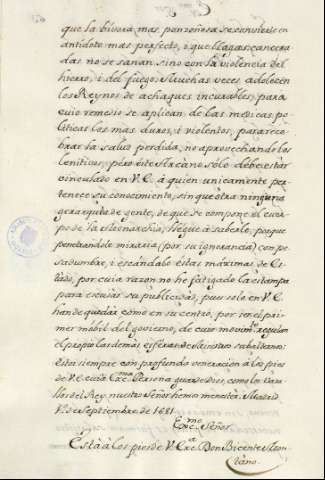 que la bivora mas ponzoñosa se convierte en
antidoto mas perfecto, i que llagas cancera
das no se sanan sino con la violencia del
hierro, i del fuego. Muchas veces adolecen
los Reynos de achaques incurables, para
cuio remedio se aplican de las medicas po
liticas los mas duros, i violentos, para reco
brar la salud perdida, no aprovechando los
lenitivos; pero este Arcano solo debe estar
vinculado en V.E. à quien unicamente per
tenece su conocimiento, sin que otra ninguna
gerarquia de gente, de que se compone el cuer
po de la Monarchia, llegue à saberle; porque
penetrandole miraria (por su ignorancia) con pe
sadumbre, i escandalo estas maximas de Es
tado, por cuia razon no he fatigado la estampa
para escusar su publicidad, pues solo en V.E.
han de quedar como en su centro, por ser el pri
mer mobil del govierno, de cuio movim.to regulan
el propio las demàs esferas de Ministros subalternos:
Estoi siempre con profunda veneracion à los pies
de V.E. cuia Ex.ma Persona guarde Dios, como los Vasa
llos del Rey nuestro Señor hemos menester. Madrid
1.º de Septiembre de 1681
Exc.mo Señor
Està à los pies de V. Ex.a Don Bicente Mon
tano.